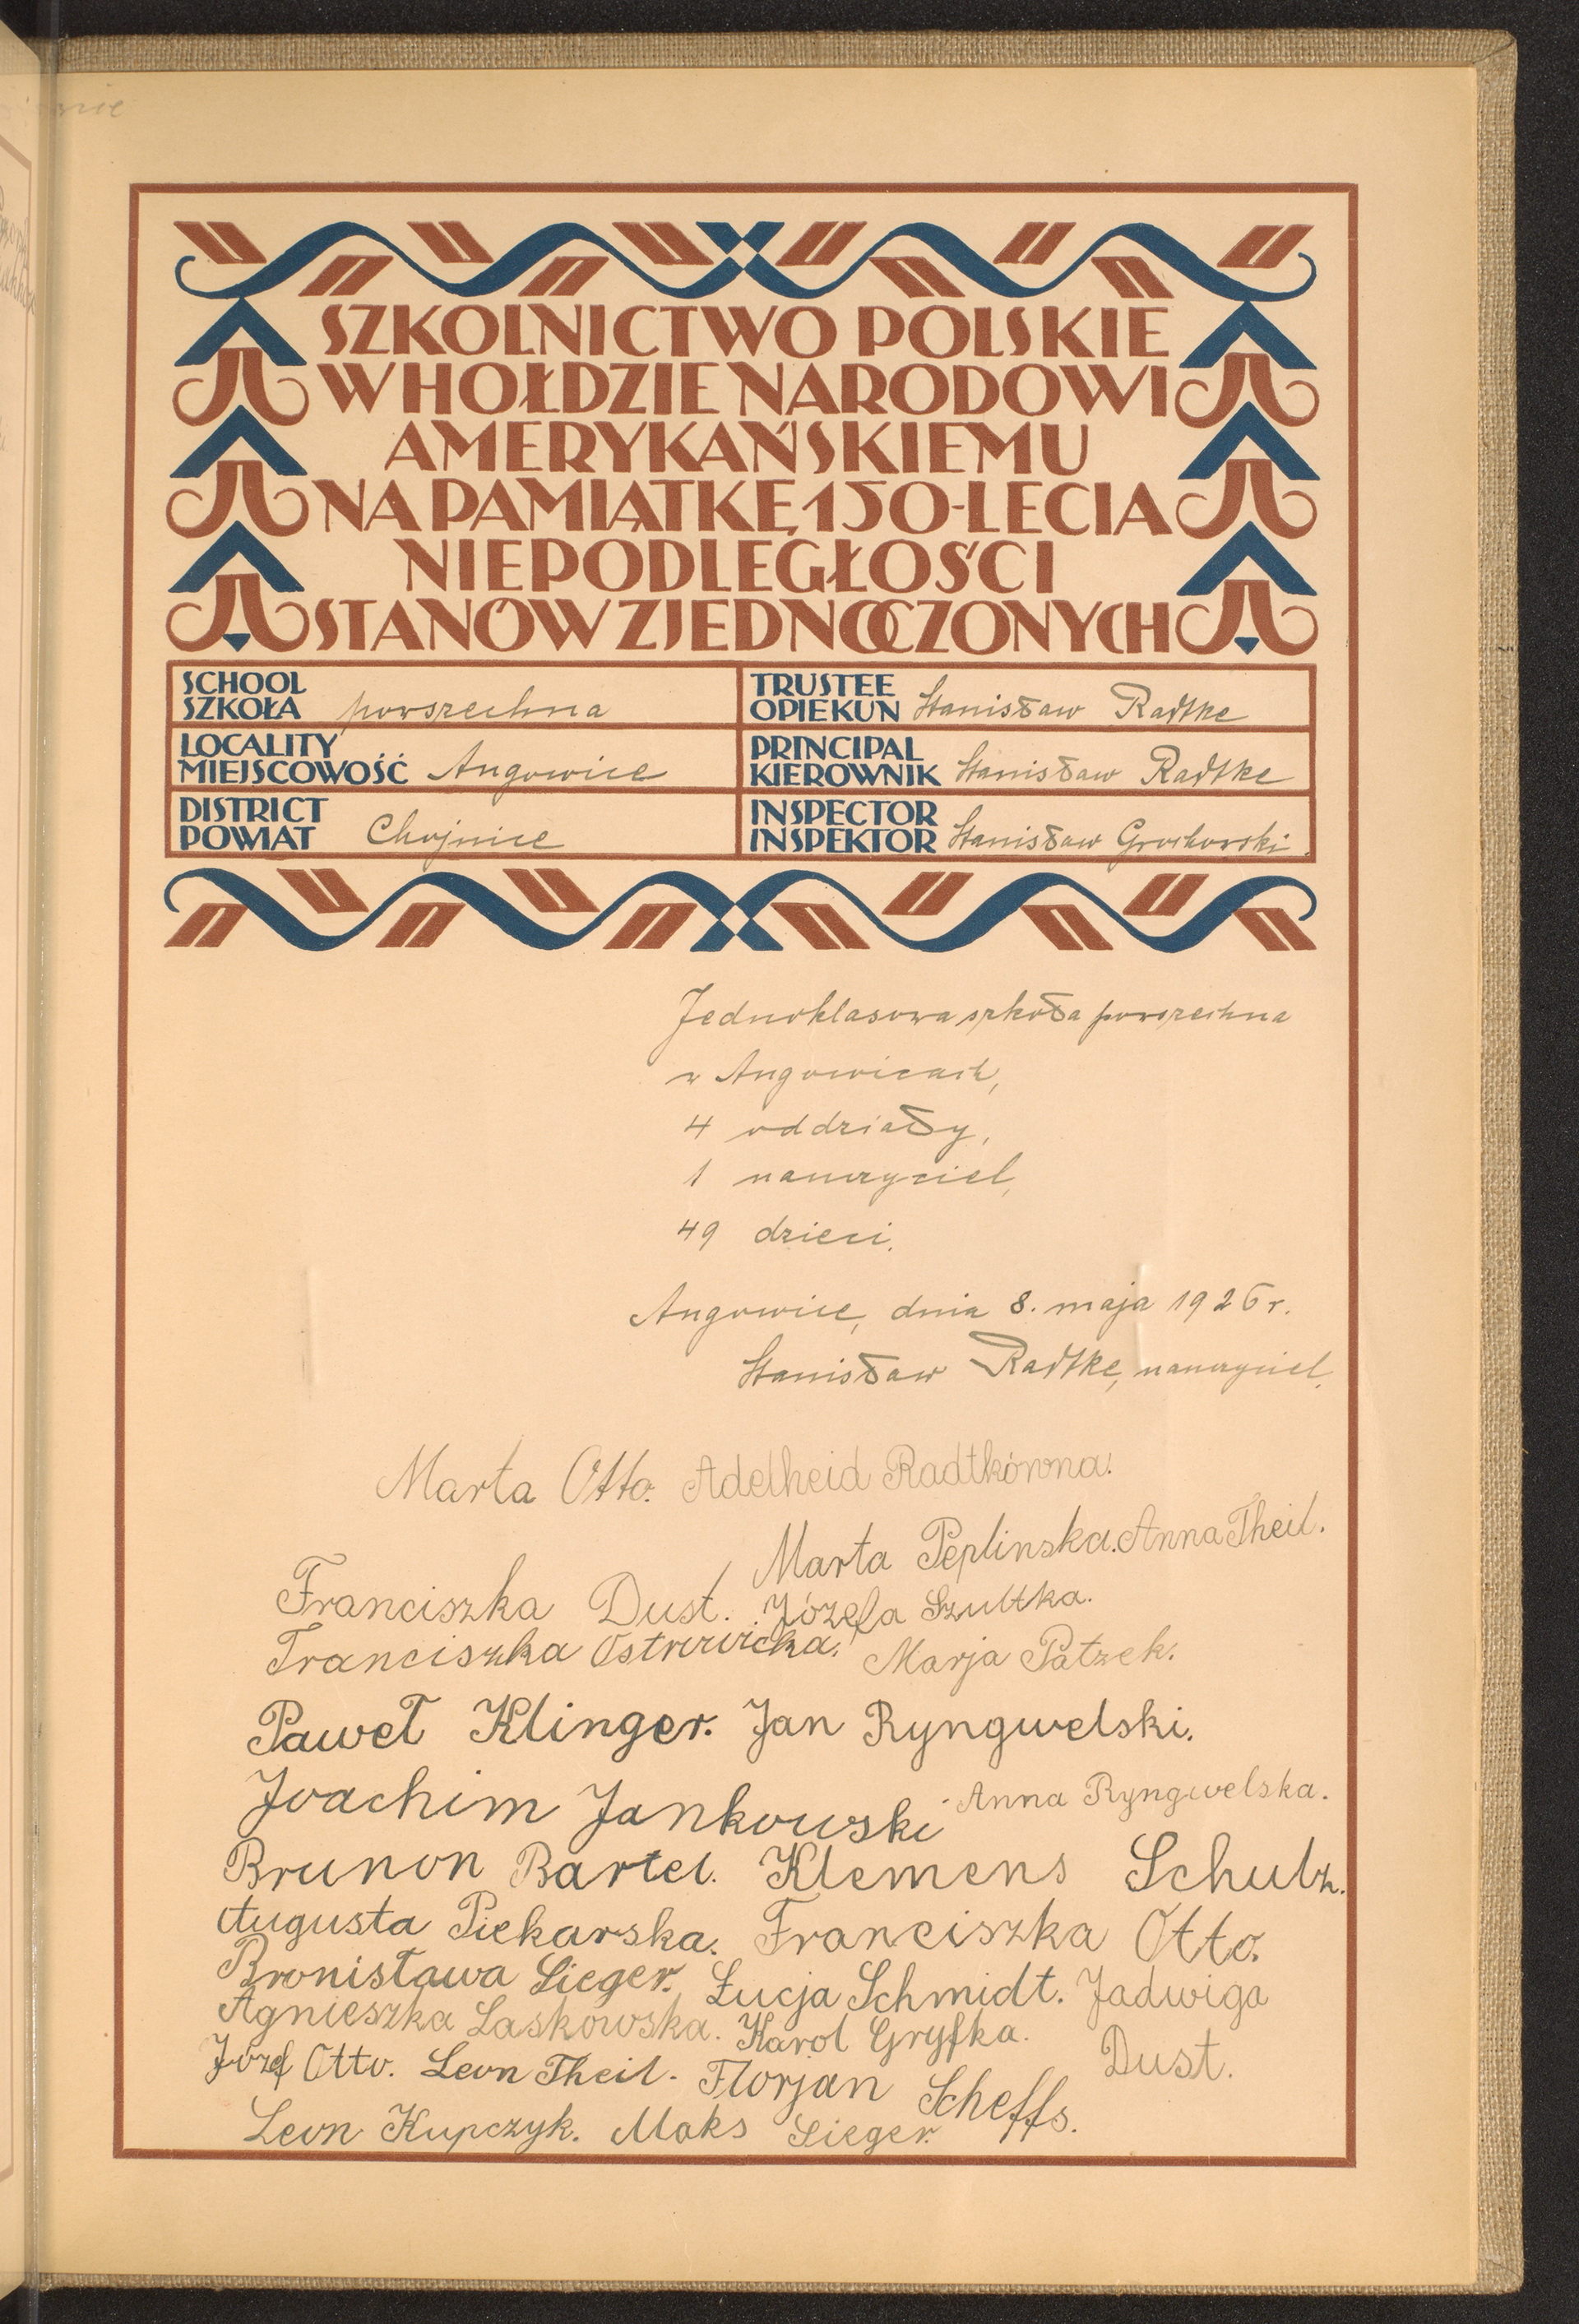 SZKOLNICTWO POLSKIE
W HOŁDZIE NARODOWI
AMERYKAŃSKIEMU
NA PAMIĄTKĘ 150-LECIA
NIEPODLEGŁOŚCI
STANÓW ZJEDNOCZONYCH
SCHOOL
SZKOŁA powszechna
TRUSTEE
OPIEKUN Stanisław Radtke
LOCALITY
MIEJSCOWOŚĆ Angowice
PRINCIPAL
KIEROWNIK Stanisław Radtke
DISTRICT
POWIAT Chojnice
INSPECTOR
INSPEKTOR Stanisław Grochowski.
Jednoklasowa szkoła powszechna
w Angowicach,
4 oddziały,
1 nauczyciel,
49 dzieci.
Angowice, dnia 8. maja 1926 r.
Stanisław Radtke, nauczyciel.
Marta Otto. Adelheid Radtkówna.
Marta Peplinska. Anna Theil.
Franciszka Dust. Józefa Szultka.
Franciszka Ostrowicka. Marja Patzek.
Paweł Klinger. Jan Ryngwelski.
Joachim Jankowski Anna Ryngwelska.
Brunon Bartel. Klemens Schulz.
Augusta Piekarska. Franciszka Otto.
Bronisława Sieger. Łucja Schmidt. Jadwiga
Agnieszka Laskowska. Karol Gryfka. Dust.
Józef Otto. Leon Theil. Florjan Scheffs.
Leon Kupczyk. Maks Sieger.